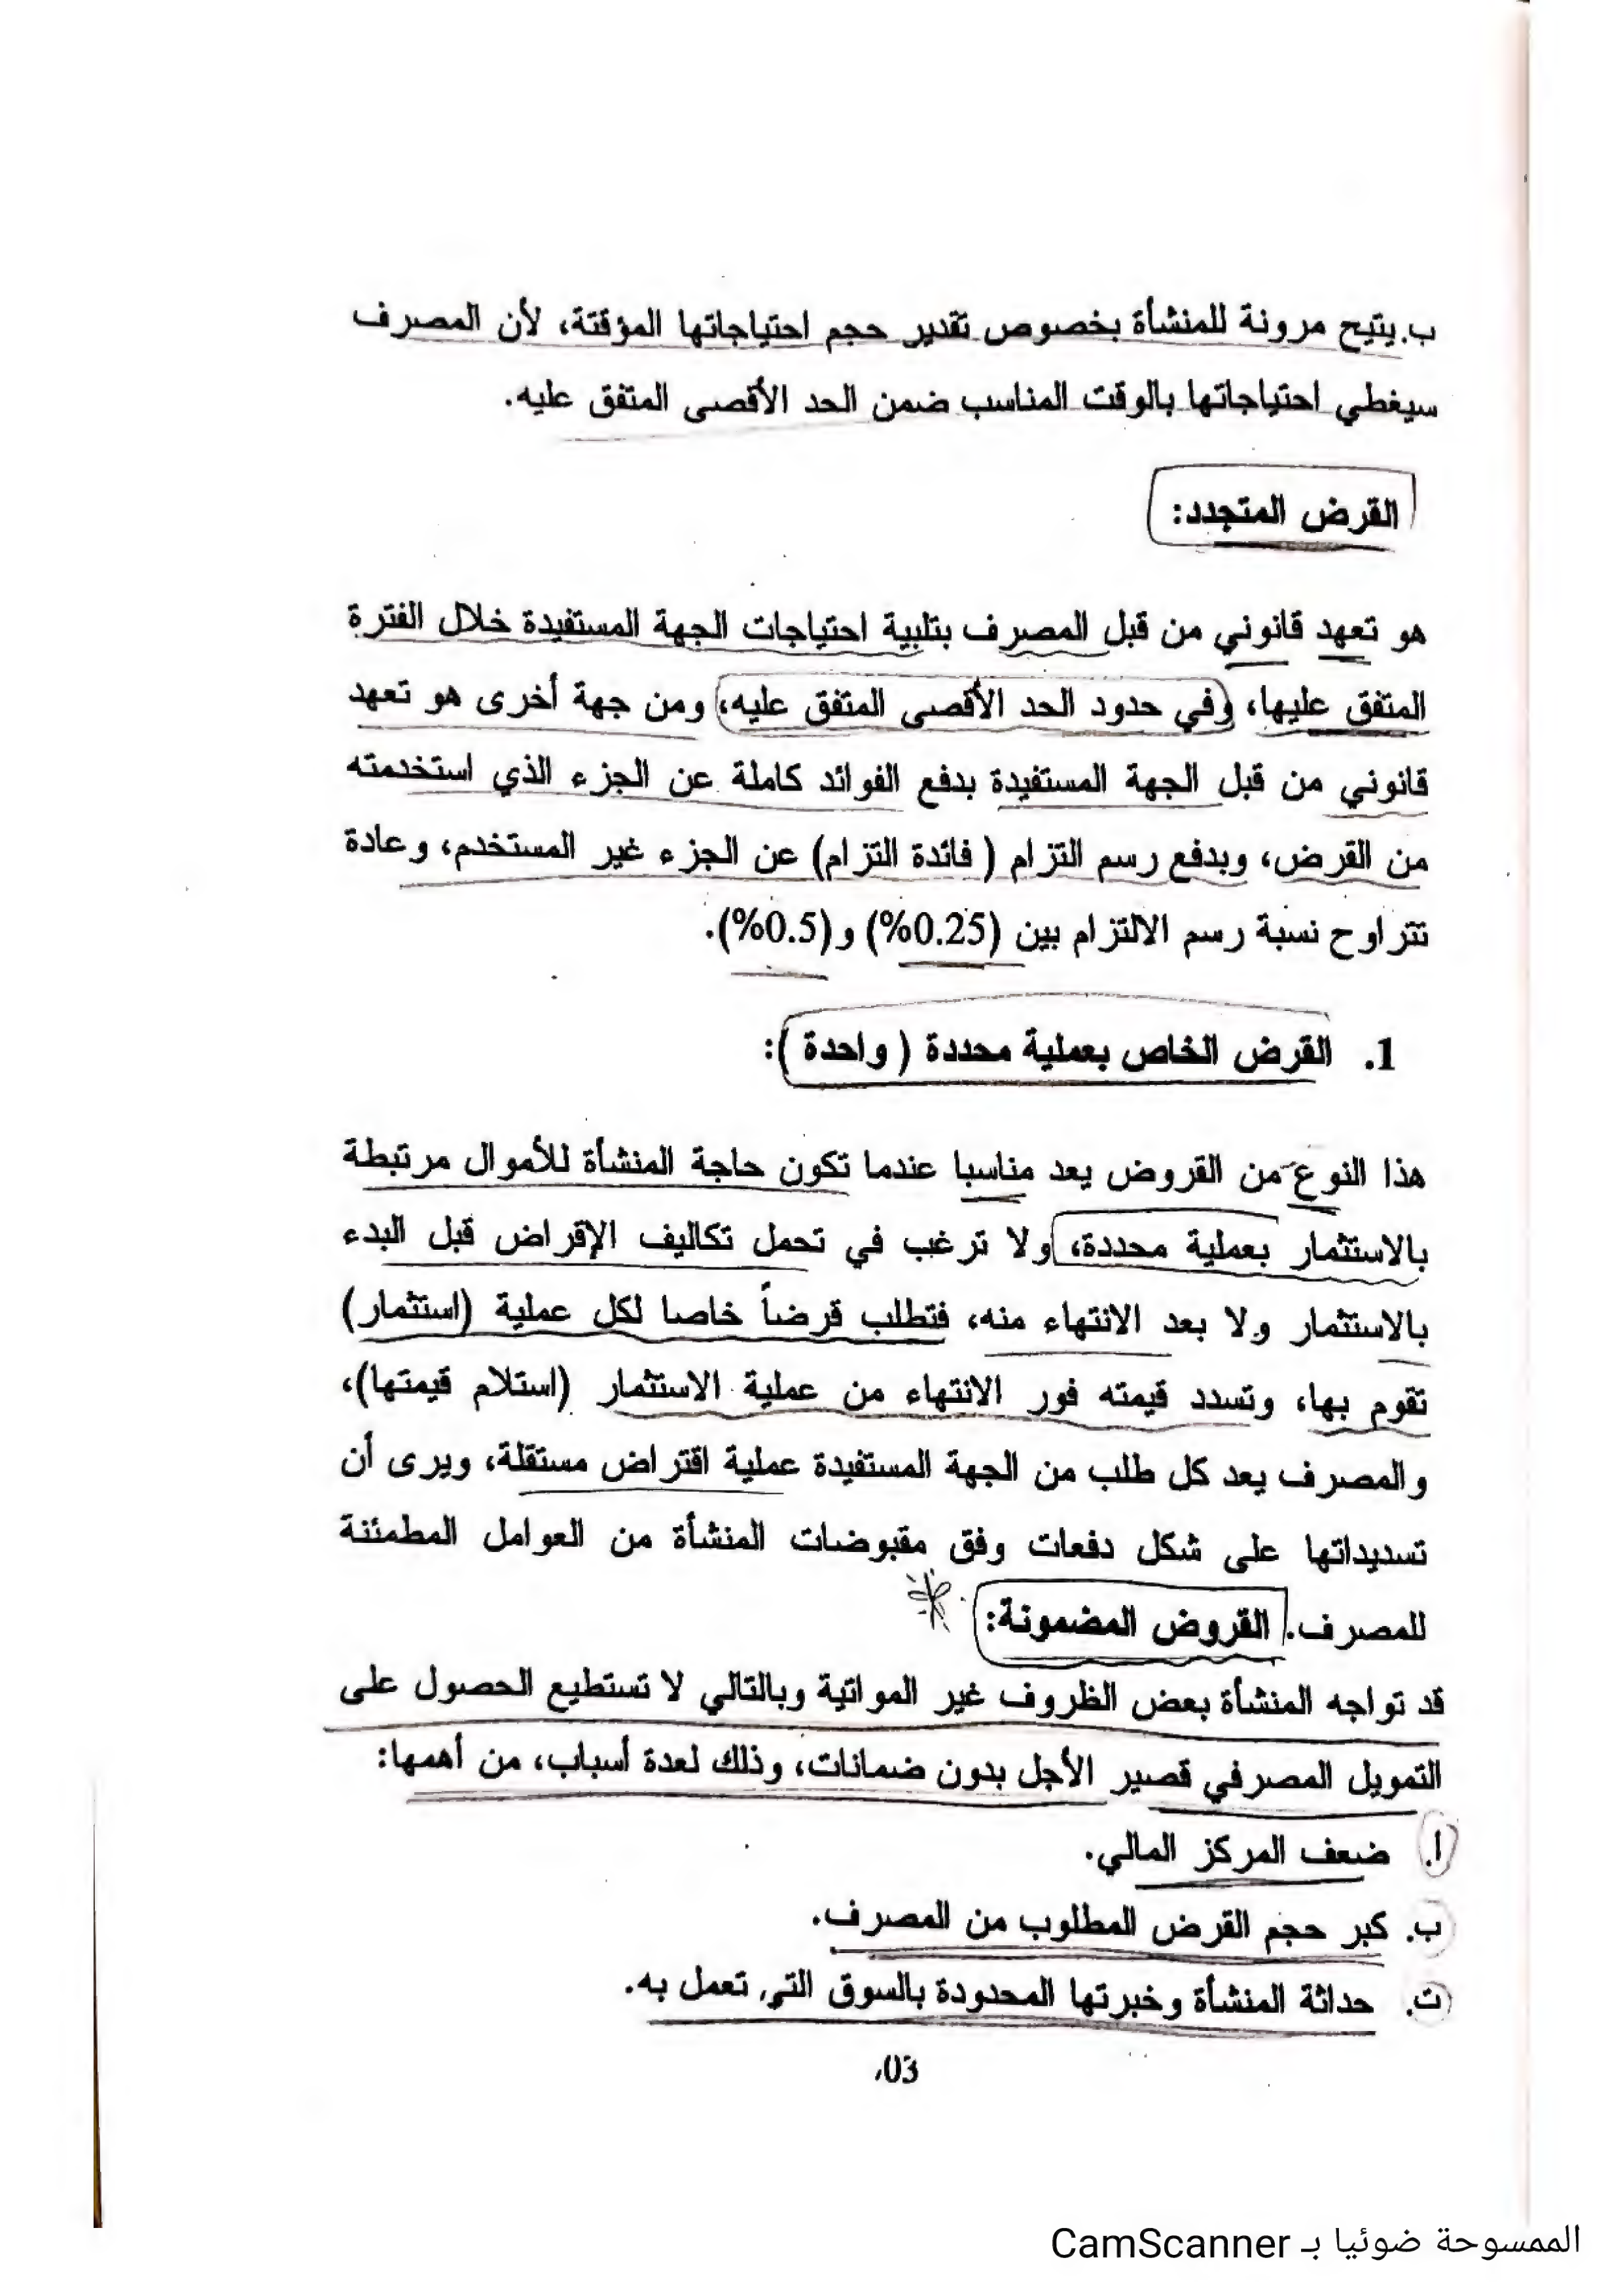 ب. يتيح مرونة للمنشأة بخصوص تقدير حجم احتياجاتها المؤقتة، لأن المصرف
سيغطي احتياجاتها بالوقت المناسب ضمن الحد الأقصى المتفق عليه.
القرض المتجدد:
هو تعهد قانوني من قبل المصرف بتلبية احتياجات الجهة المستفيدة خلال الفترة
المتفق عليها، وفي حدود الحد الأقصى المتفق عليه، ومن جهة أخرى هو تعهد
قانوني من قبل الجهة المستفيدة بدفع الفوائد كاملة عن الجزء الذي استخدمته
من القرض، وبدفع رسم التزام ( فائدة التزام) عن الجزء غير المستخدم، وعادة
تتراوح نسبة رسم الالتزام بين (0.25%) و(0.5%).
1. القرض الخاص بعملية محددة ( واحدة ):
هذا النوع من القروض يعد مناسبا عندما تكون حاجة المنشأة للأموال مرتبطة
بالاستثمار بعملية محددة، ولا ترغب في تحمل تكاليف الإقراض قبل البدء
بالاستثمار ولا بعد الانتهاء منه، فتطلب قرضاً خاصا لكل عملية (استثمار)
تقوم بها، وتسدد قيمته فور الانتهاء من عملية الاستثمار (استلام قيمتها)،
والمصرف يعد كل طلب من الجهة المستفيدة عملية اقتراض مستقلة، ويرى أن
تسديداتها على شكل دفعات وفق مقبوضات المنشأة من العوامل المطمئنة
للمصرف. القروض المضمونة:
قد تواجه المنشأة بعض الظروف غير المواتية وبالتالي لا تستطيع الحصول على
التمويل المصرفي قصير الأجل بدون ضمانات، وذلك لعدة أسباب، من أهمها:
أ. ضعف المركز المالي.
ب. كبر حجم القرض المطلوب من المصرف.
ت. حداثة المنشأة وخبرتها المحدودة بالسوق التي تعمل به.
03
الممسوحة ضوئيا بـ CamScanner